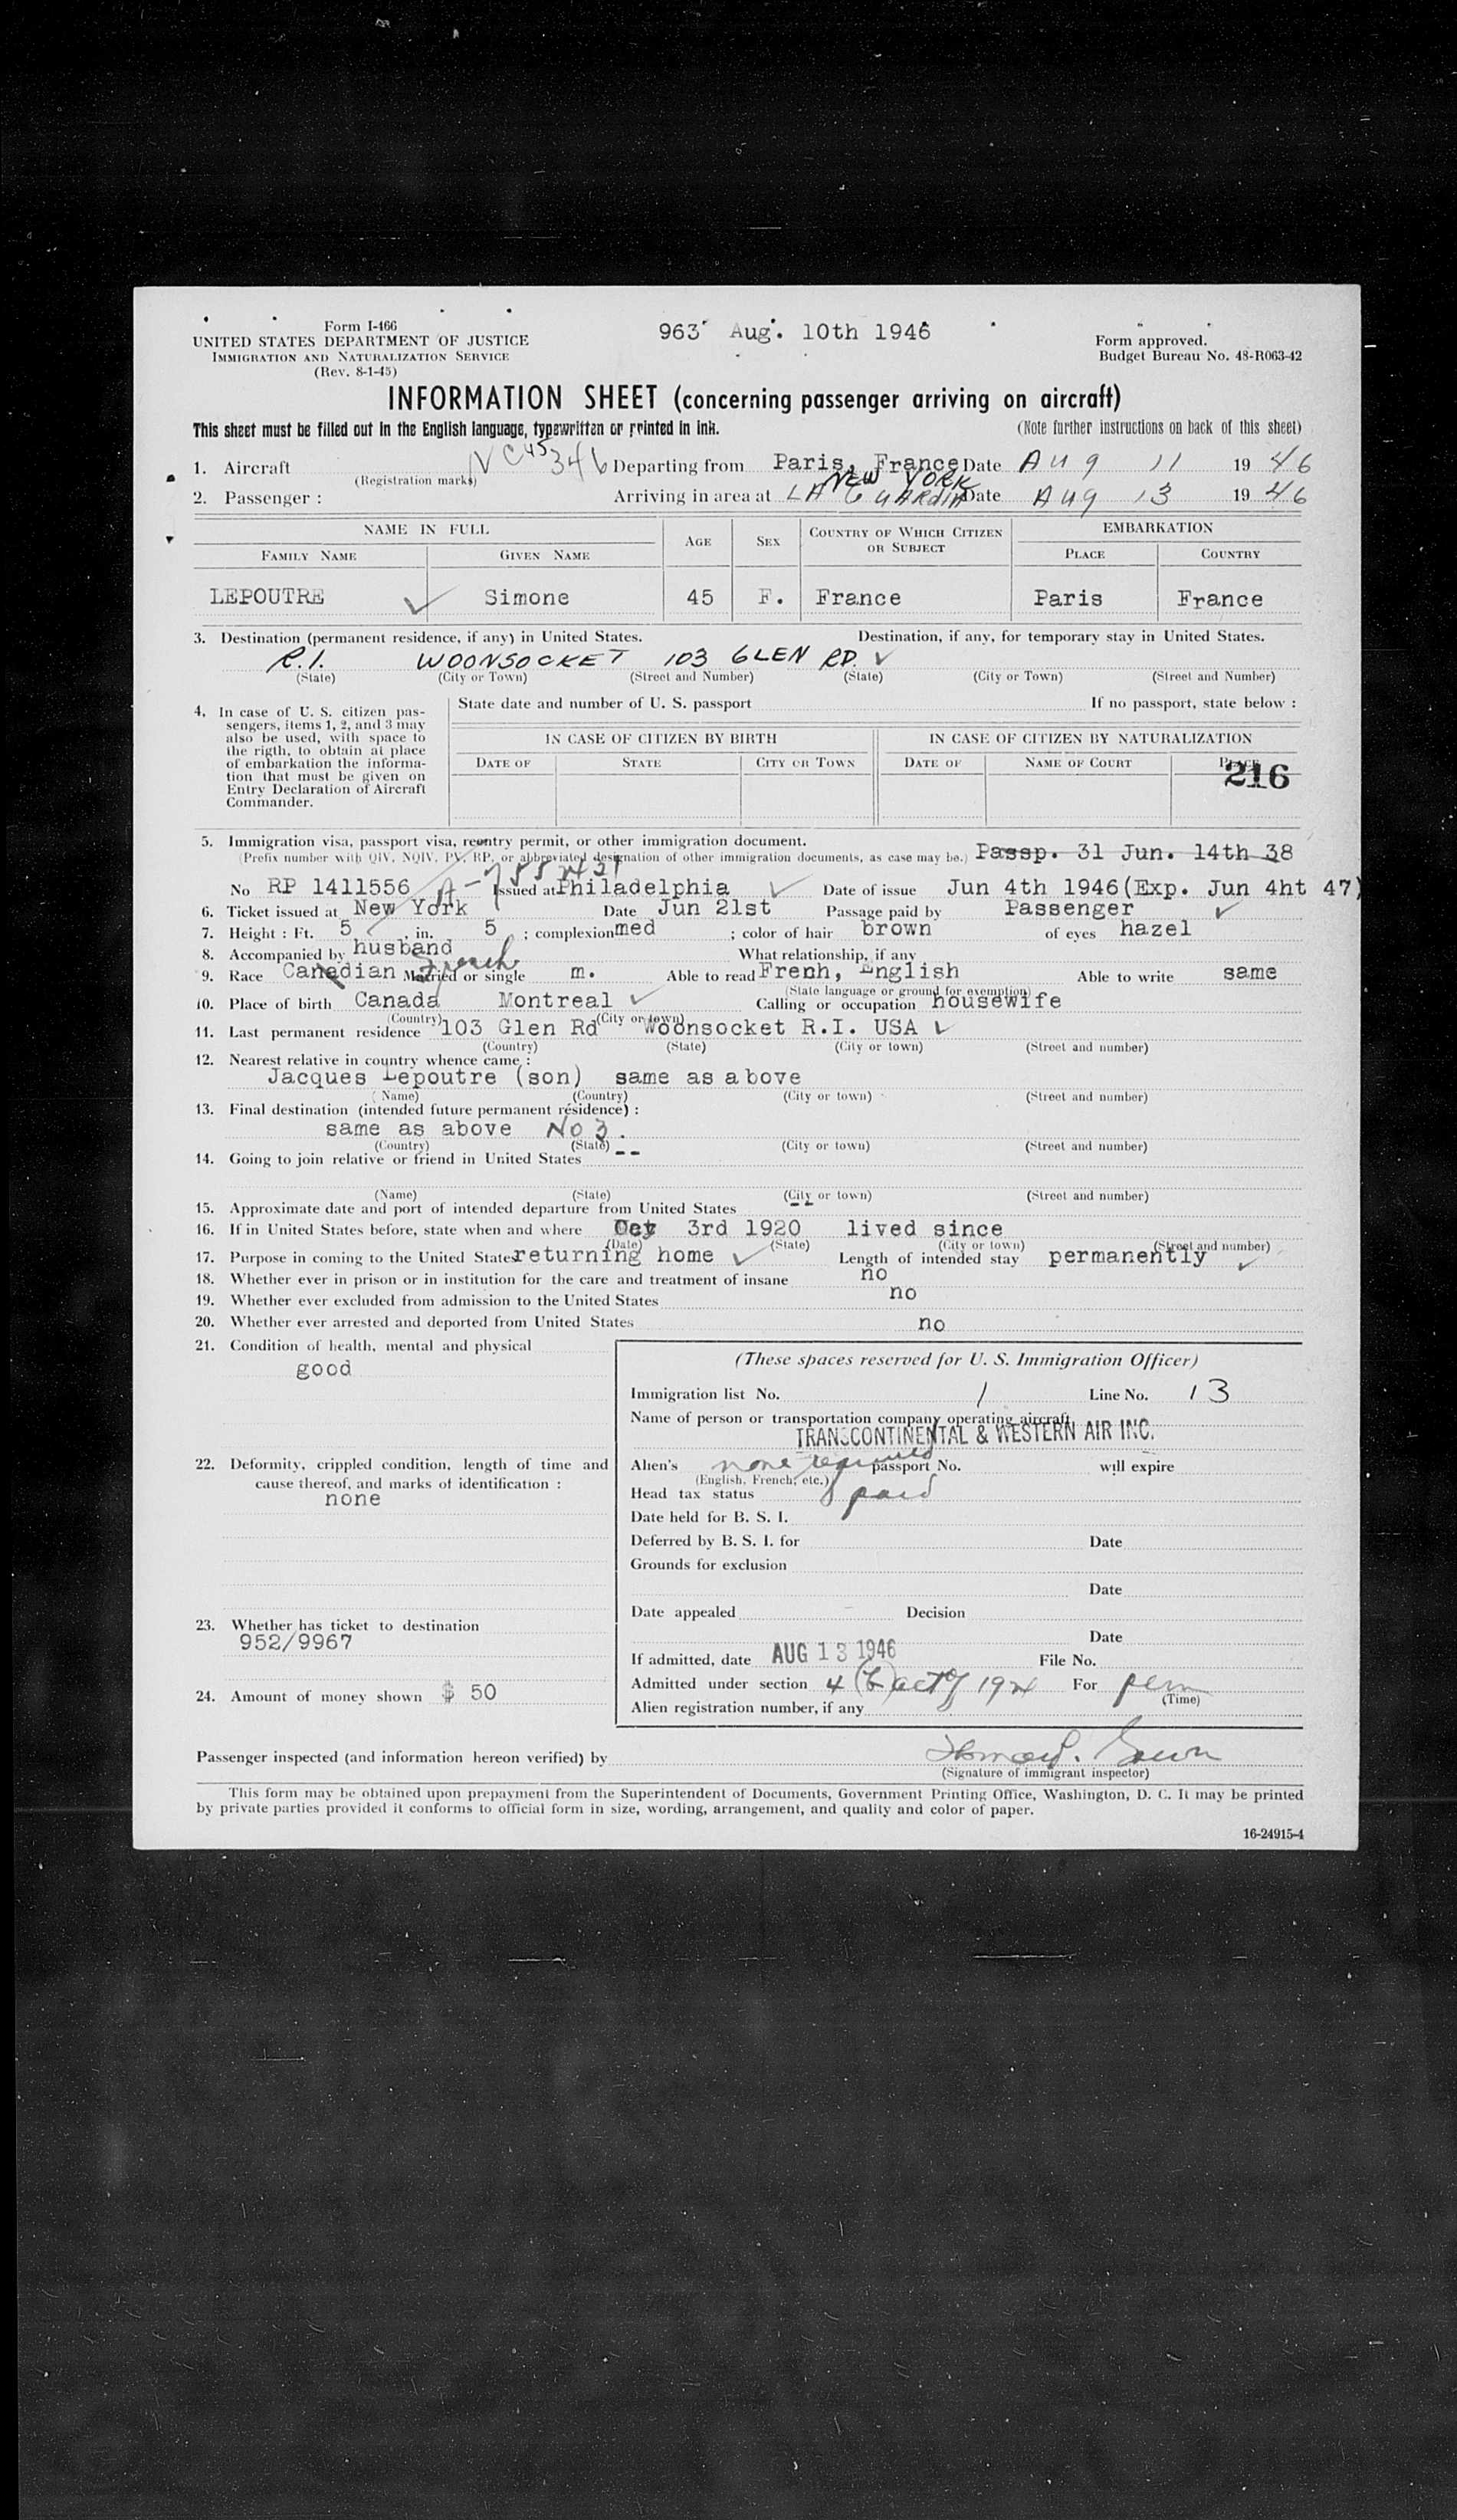 Form I-466
UNITED STATES DEPARTMENT OF JUSTICE
IMMIGRATION AND NATURALIZATION SERVICE
(Rev. 8-1-45)
963 Aug. 10th 1946
Form approved.
Budget Bureau No. 48-R063-42
INFORMATION SHEET (concerning passenger arriving on aircraft)
This sheet must be filled out in the English language, typewritten or printed in ink. (Note further instructions on back of this sheet)
1. Aircraft NC 45346 Departing from Paris, France Date Aug 11 1946
(Registration marks)
NEW YORK
2. Passenger : Arriving in area at LA GUARDIA Date Aug 13 1946
NAME IN FULL AGE SEX COUNTRY OF WHICH CITIZEN OR SUBJECT EMBARKATION
FAMILY NAME GIVEN NAME PLACE COUNTRY
LEPOUTRE Simone 45 F. France Paris France
3. Destination (permanent residence, if any) in United States. Destination, if any, for temporary stay in United States.
R.I. WOONSOCKET 103 GLEN RD.
(State) (City or Town) (Street and Number) (State) (City or Town) (Street and Number)
4. In case of U. S. citizen pas-
sengers, items 1, 2, and 3 may
also be used, with space to
the rigth, to obtain at place
of embarkation the informa-
tion that must be given on
Entry Declaration of Aircraft
Commander.
State date and number of U. S. passport If no passport, state below :
IN CASE OF CITIZEN BY BIRTH IN CASE OF CITIZEN BY NATURALIZATION
DATE OF STATE CITY OR TOWN DATE OF NAME OF COURT PLACE
216
5. Immigration visa, passport visa, reentry permit, or other immigration document.
(Prefix number with QIV, NQIV, PV, RP, or abbreviated designation of other immigration documents, as case may be.) Passp. 31 Jun. 14th 38
No RP 1411556 Issued at Philadelphia Date of issue Jun 4th 1946(Exp. Jun 4ht 47)
6. Ticket issued at New York Date Jun 21st Passage paid by Passenger
7. Height : Ft. 5 , in. 5 ; complexion med ; color of hair brown of eyes hazel
8. Accompanied by husband What relationship, if any
French
9. Race Canadian Married or single m. Able to read Frenh, English Able to write same
(State language or ground for exemption)
10. Place of birth Canada Montreal Calling or occupation housewife
(Country) (City or town)
11. Last permanent residence 103 Glen Rd Woonsocket R.I. USA
(Country) (State) (City or town) (Street and number)
12. Nearest relative in country whence came :
Jacques Lepoutre (son) same as above
(Name) (Country) (City or town) (Street and number)
13. Final destination (intended future permanent résidence) :
same as above No 3.
(Country) (State) (City or town) (Street and number)
14. Going to join relative or friend in United States --
(Name) (State) (City or town) (Street and number)
15. Approximate date and port of intended departure from United States --
16. If in United States before, state when and where Oct 3rd 1920 lived since
(Date) (State) (City or town) (Street and number)
17. Purpose in coming to the United States returning home Length of intended stay permanently
18. Whether ever in prison or in institution for the care and treatment of insane no
19. Whether ever excluded from admission to the United States no
20. Whether ever arrested and deported from United States no
21. Condition of health, mental and physical
good
22. Deformity, crippled condition, length of time and
cause thereof, and marks of identification :
none
23. Whether has ticket to destination
952/9967
24. Amount of money shown $ 50
(These spaces reserved for U. S. Immigration Officer)
Immigration list No. 1 Line No. 13
Name of person or transportation company operating aircraft
TRANSCONTINENTAL & WESTERN AIR INC.
Alien's none required passport No. will expire
(English, French, etc.)
Head tax status paid
Date held for B. S. I.
Deferred by B. S. I. for Date
Grounds for exclusion
Date
Date appealed Decision
Date
If admitted, date AUG 13 1946 File No.
Admitted under section 4 (b) act of 1924 For perm
(Time)
Alien registration number, if any
Passenger inspected (and information hereon verified) by
(Signature of immigrant inspector)
This form may be obtained upon prepayment from the Superintendent of Documents, Government Printing Office, Washington, D. C. It may be printed
by private parties provided it conforms to official form in size, wording, arrangement, and quality and color of paper.
16-24915-4